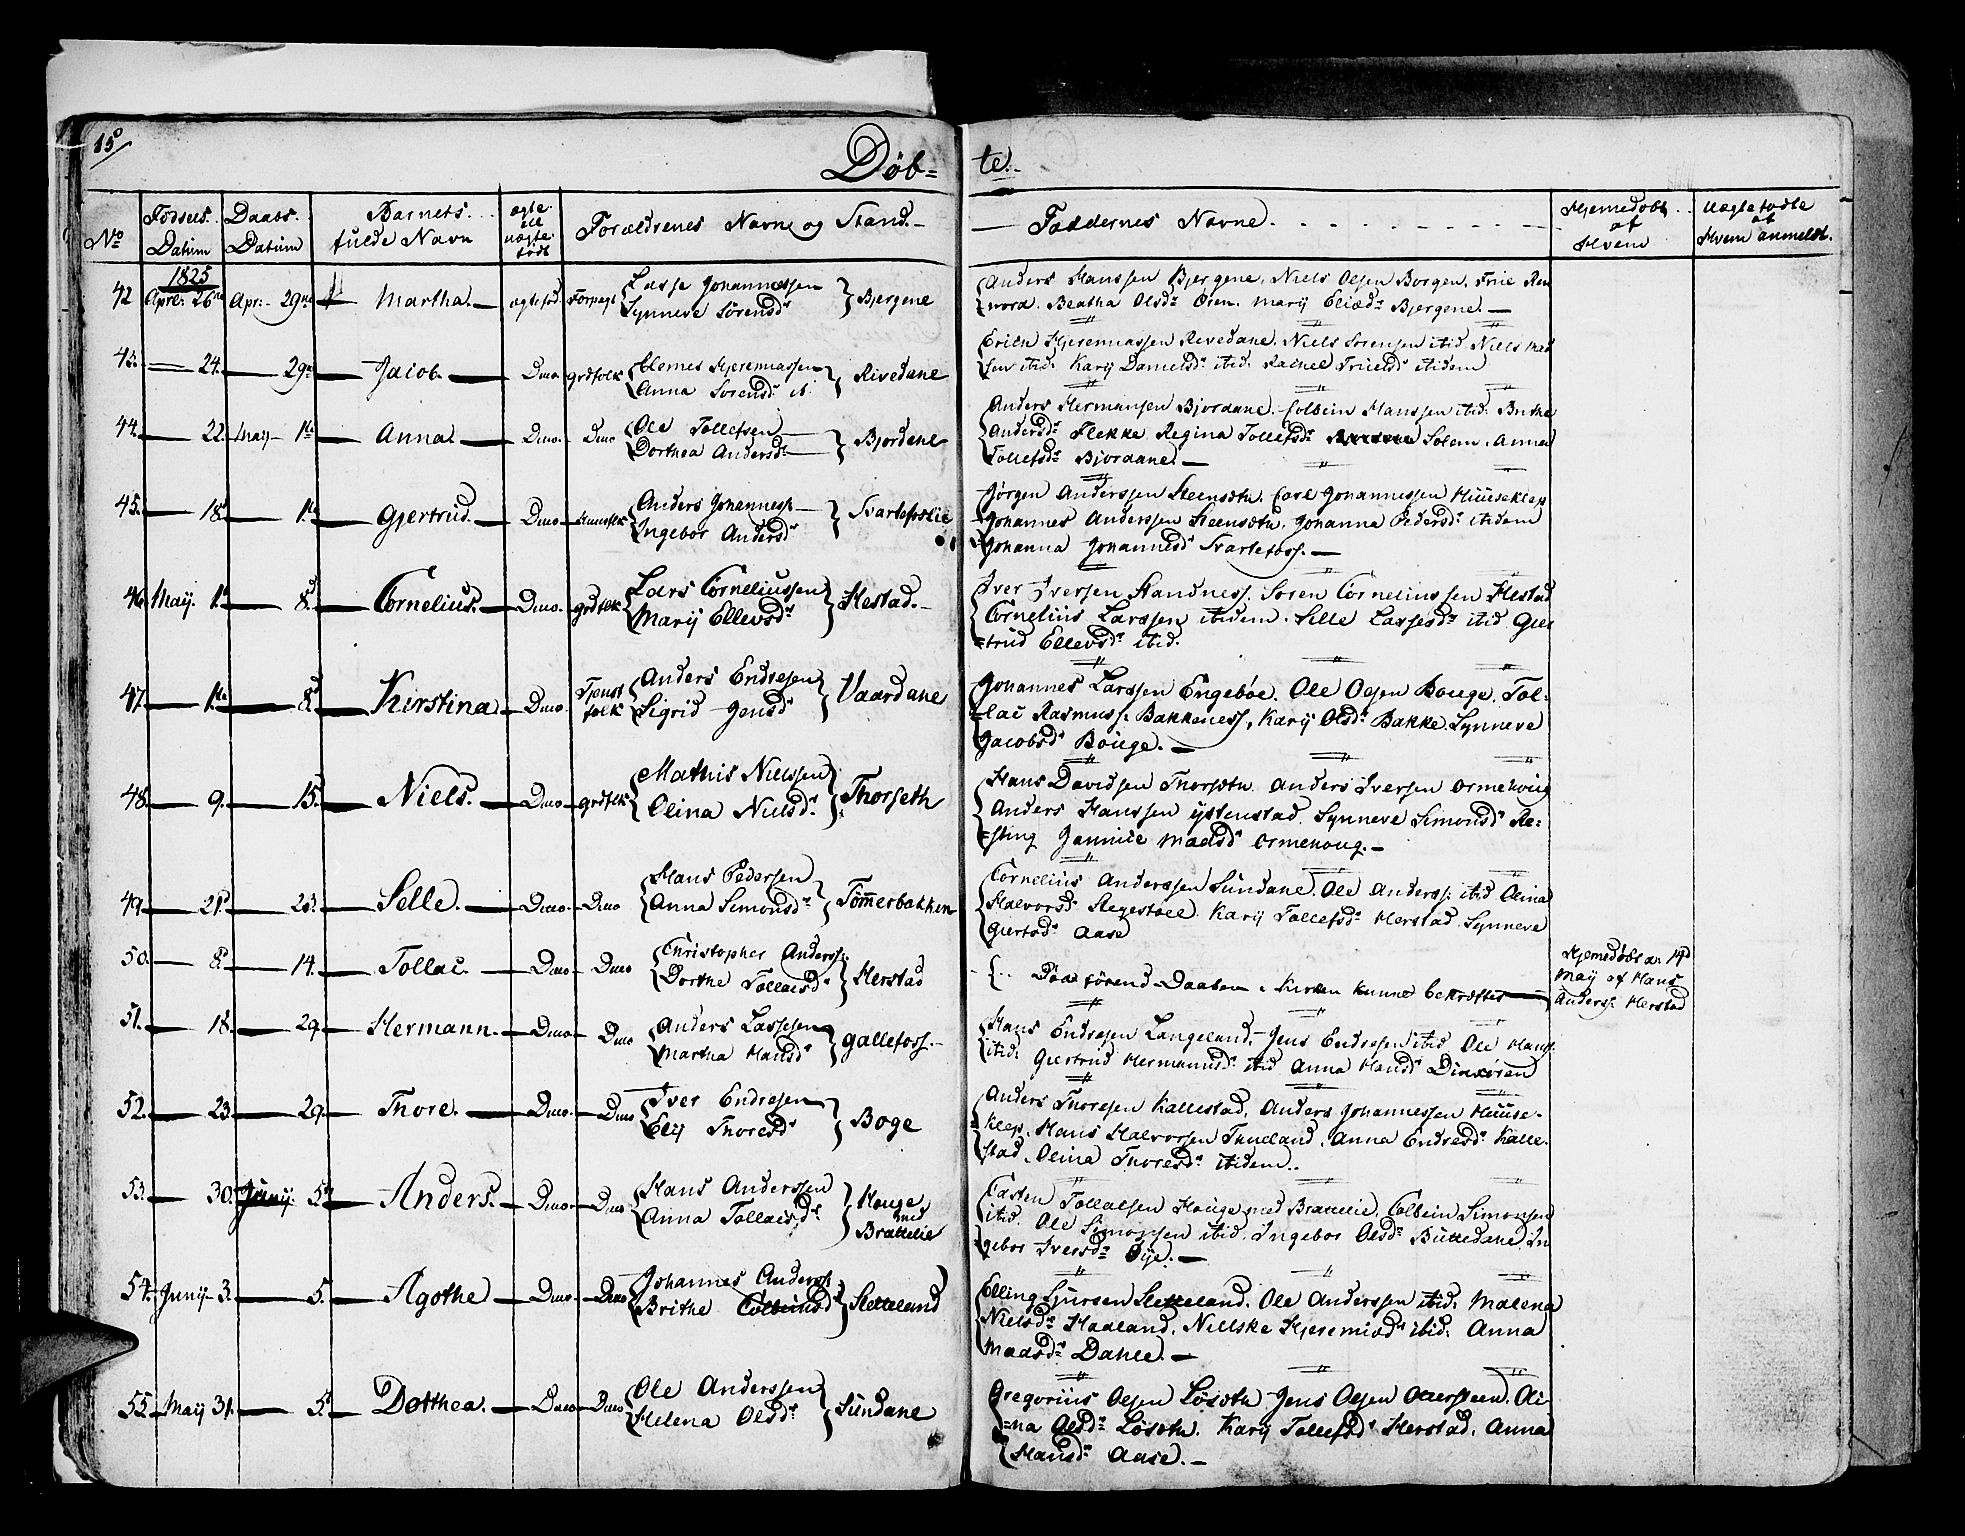 15
Døb= te.
No
Fødsels. Datum
Daabs. Datum
Barnets. fulde Navn
ægte. ell uægte. født
Forældrenes Navne og Stand.
Faddernes Navne.
Hjemedøbt af Hvem
Uægtefødte af Hvem anmeldt.
1825
42 April 26 Apr. 29 Martha. ægtefød. Forpagt Lasse Johannessen Synneve Sørensd. Bjergene
Anders Hanssen Bjergene, Niels Olsen Borgen,
Beatha Olsd. Øren. Marij Eliæd. Bjergene.
43. 24. 29 Jacob. Dmo grdfolk Clemet Hjeremiassen Anna Sorensd. ib. Rivedane
Erich Hjeremiassen Revedane. Niels Sorensen itid. Niels Mad
sen itid. Karij Danielsd. itid. Rachel itidem
44. 22. Maij 1te Anna. Dmo Dmo Ole Tollefsen Dorthea Andersd. Bjordane
Anders Hermansen Bjordane. Colbein Hanssen itid. Brithe
Andersd. Flekke. Regina Tollefsd. Solem. Anna
Tollefsd. Bjordane.
45. 18 1te Gjertrud. Dmo Huusfolk Anders Johanness. Ingebor Andersd. Svartefoslie
Jørgen Anderssen Steensæth. Carl Johannessen Huuseklep
Johannes Anderssen Steensæth, Johanna Pedersd. itidem
Johanna Johannesd. Svartefoss.
46. Maij. 1 8. Cornelius. Dmo. grdfolk Lars Corneliussen Marij Ellevsd. Hestad.
Iver Iversen Standness. Soren Corneliussen Hestad
Cornelius Larssen itidem. Selle Lassesd. itid Gier
=trud Ellevsd. itid.
47. 1te 8. Kirstina Dmo. Tjenstfolk Anders Endresen Sigrid Jensd. Vaardane
Johannes Larssen Engebøe. Ole Olsen Bouge. Tol=
=lac Rasmuss. Bakkeness, Karij Olsd. Bakke. Synneve
Jacobsd. Bouge.
48. 9. 15. Niels. Dmo grdfolk Mathis Nielssen Olina Nielsd. Thorseth
Hans Davidsen Thorseth. Anders Iversen Ormehoug
Anders Hanssen Ystenstad. Synneve Simonsd. Re=
=sting Jannice Madsd. Ormehoug.
49. 21 23. Selle. Dmo. Dmo Hans Pedersen Anna Simonsd. Tømmerbakken
Cornelius Anderssen Sundane. Ole Anderss. itid Olina
Halvorsd. Karij Tollefsd. Herstad. Synneve
Giertsd. Aase
50. 8. 14. Tollac. Dmo Dmo Christopher Anderss. Dorthe Tollacsd. Herstad
Døde førend Daaben i Kirken kunne bekræftes
Hjemedøbt d. 14d
Maij af Hans
Anderss. Herstad
51. 18. 29. Hermann. Dmo. Dmo Anders Lassesen Martha Hansd. Gallefoss.
Hans Endresen Langeland, Jens Endresen itid Ole Hanss.
itid. Giertrud Hermannsd. itid Anna Hansd. Dinxøren
52. 23. 29. Thore. Dmo. Dmo Iver Endresen Elij Thoresd. Boge
Anders Thoresen Kallestad, Anders Johannessen Huuse-
klep. Hans Halvorsen Thueland. Anna Endresd. Kalle-
stad. Olina Thoresd. itidem.
53. 30. Junij. 5 Anders. Dmo. Dmo Hans Anderssen Anna Tollacsd. Houge med Brattelie
Casten Tollacsen Houge med Brattelie, Colbein Simonsen
itid. Ole Simonsen itid. Ingebor Olsd. Büttedane. In
gebor Iversd. Øije.
54. Junij 3. 5. Agothe Dmo. Dmo Johannes Anderss. Brithe Colbeinsd. Sletteland
Elling Sjursen Sletteland. Ole Anderssen itid. Malena
Nielsd. Haaland. Nillske Hjeremiæd. itid. Anna
Madsd. Dahle.
55 Maij 31. 5. Dotthea. Dmo Dmo Ole Anderssen Helena Olsd. Sundane
Gregorius Olsen Løsæth Jens Olsen Ottersteen. Oli=
=na Olsd. Løsæth. Karij Tollefsd. Herstad. Anna
Hansd. Aase.